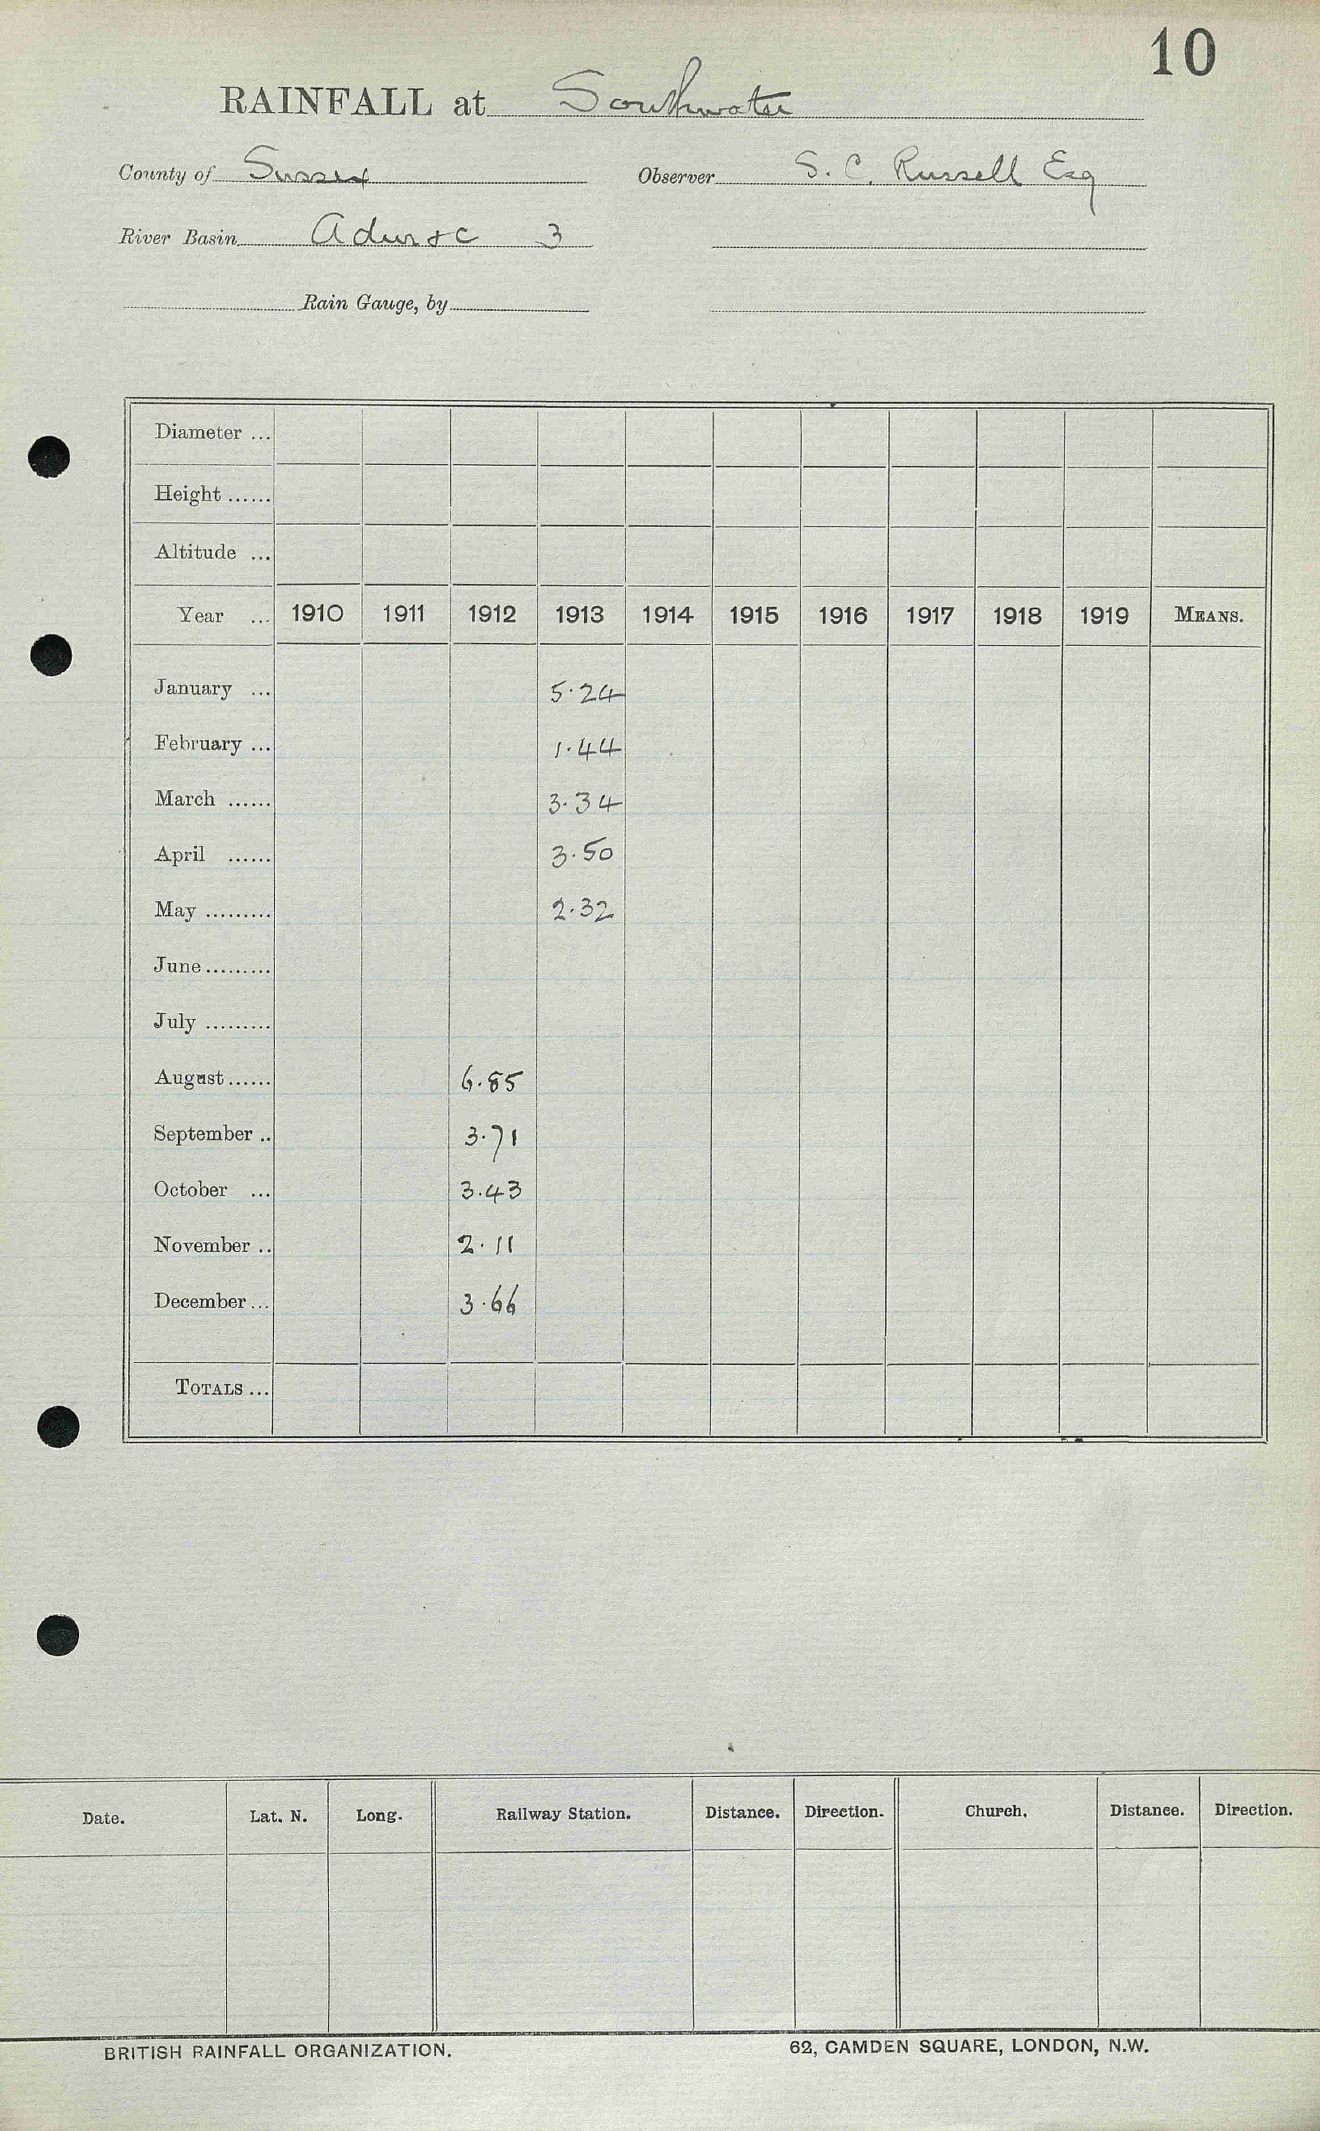 10
RAINFALL at Southwater
County of Sussex Observer S. C. Russell Esq
River Basin Adur &c 3
Rain Gauge, by
Diameter ...
Height ......
Altitude ...
Year ... 1910 1911 1912 1913 1914 1915 1916 1917 1918 1919 MEANS.
January ... 5.24
February ... 1.44
March ...... 3.34
April ...... 3.50
May ......... 2.32
June .........
July .........
August ...... 6.85
September .. 3.71
October ... 3.43
November .. 2.11
December ... 3.66
TOTALS ...
Date. Lat. N. Long. Railway Station. Distance. Direction. Church. Distance. Direction.
BRITISH RAINFALL ORGANIZATION. 62, CAMDEN SQUARE, LONDON, N.W.